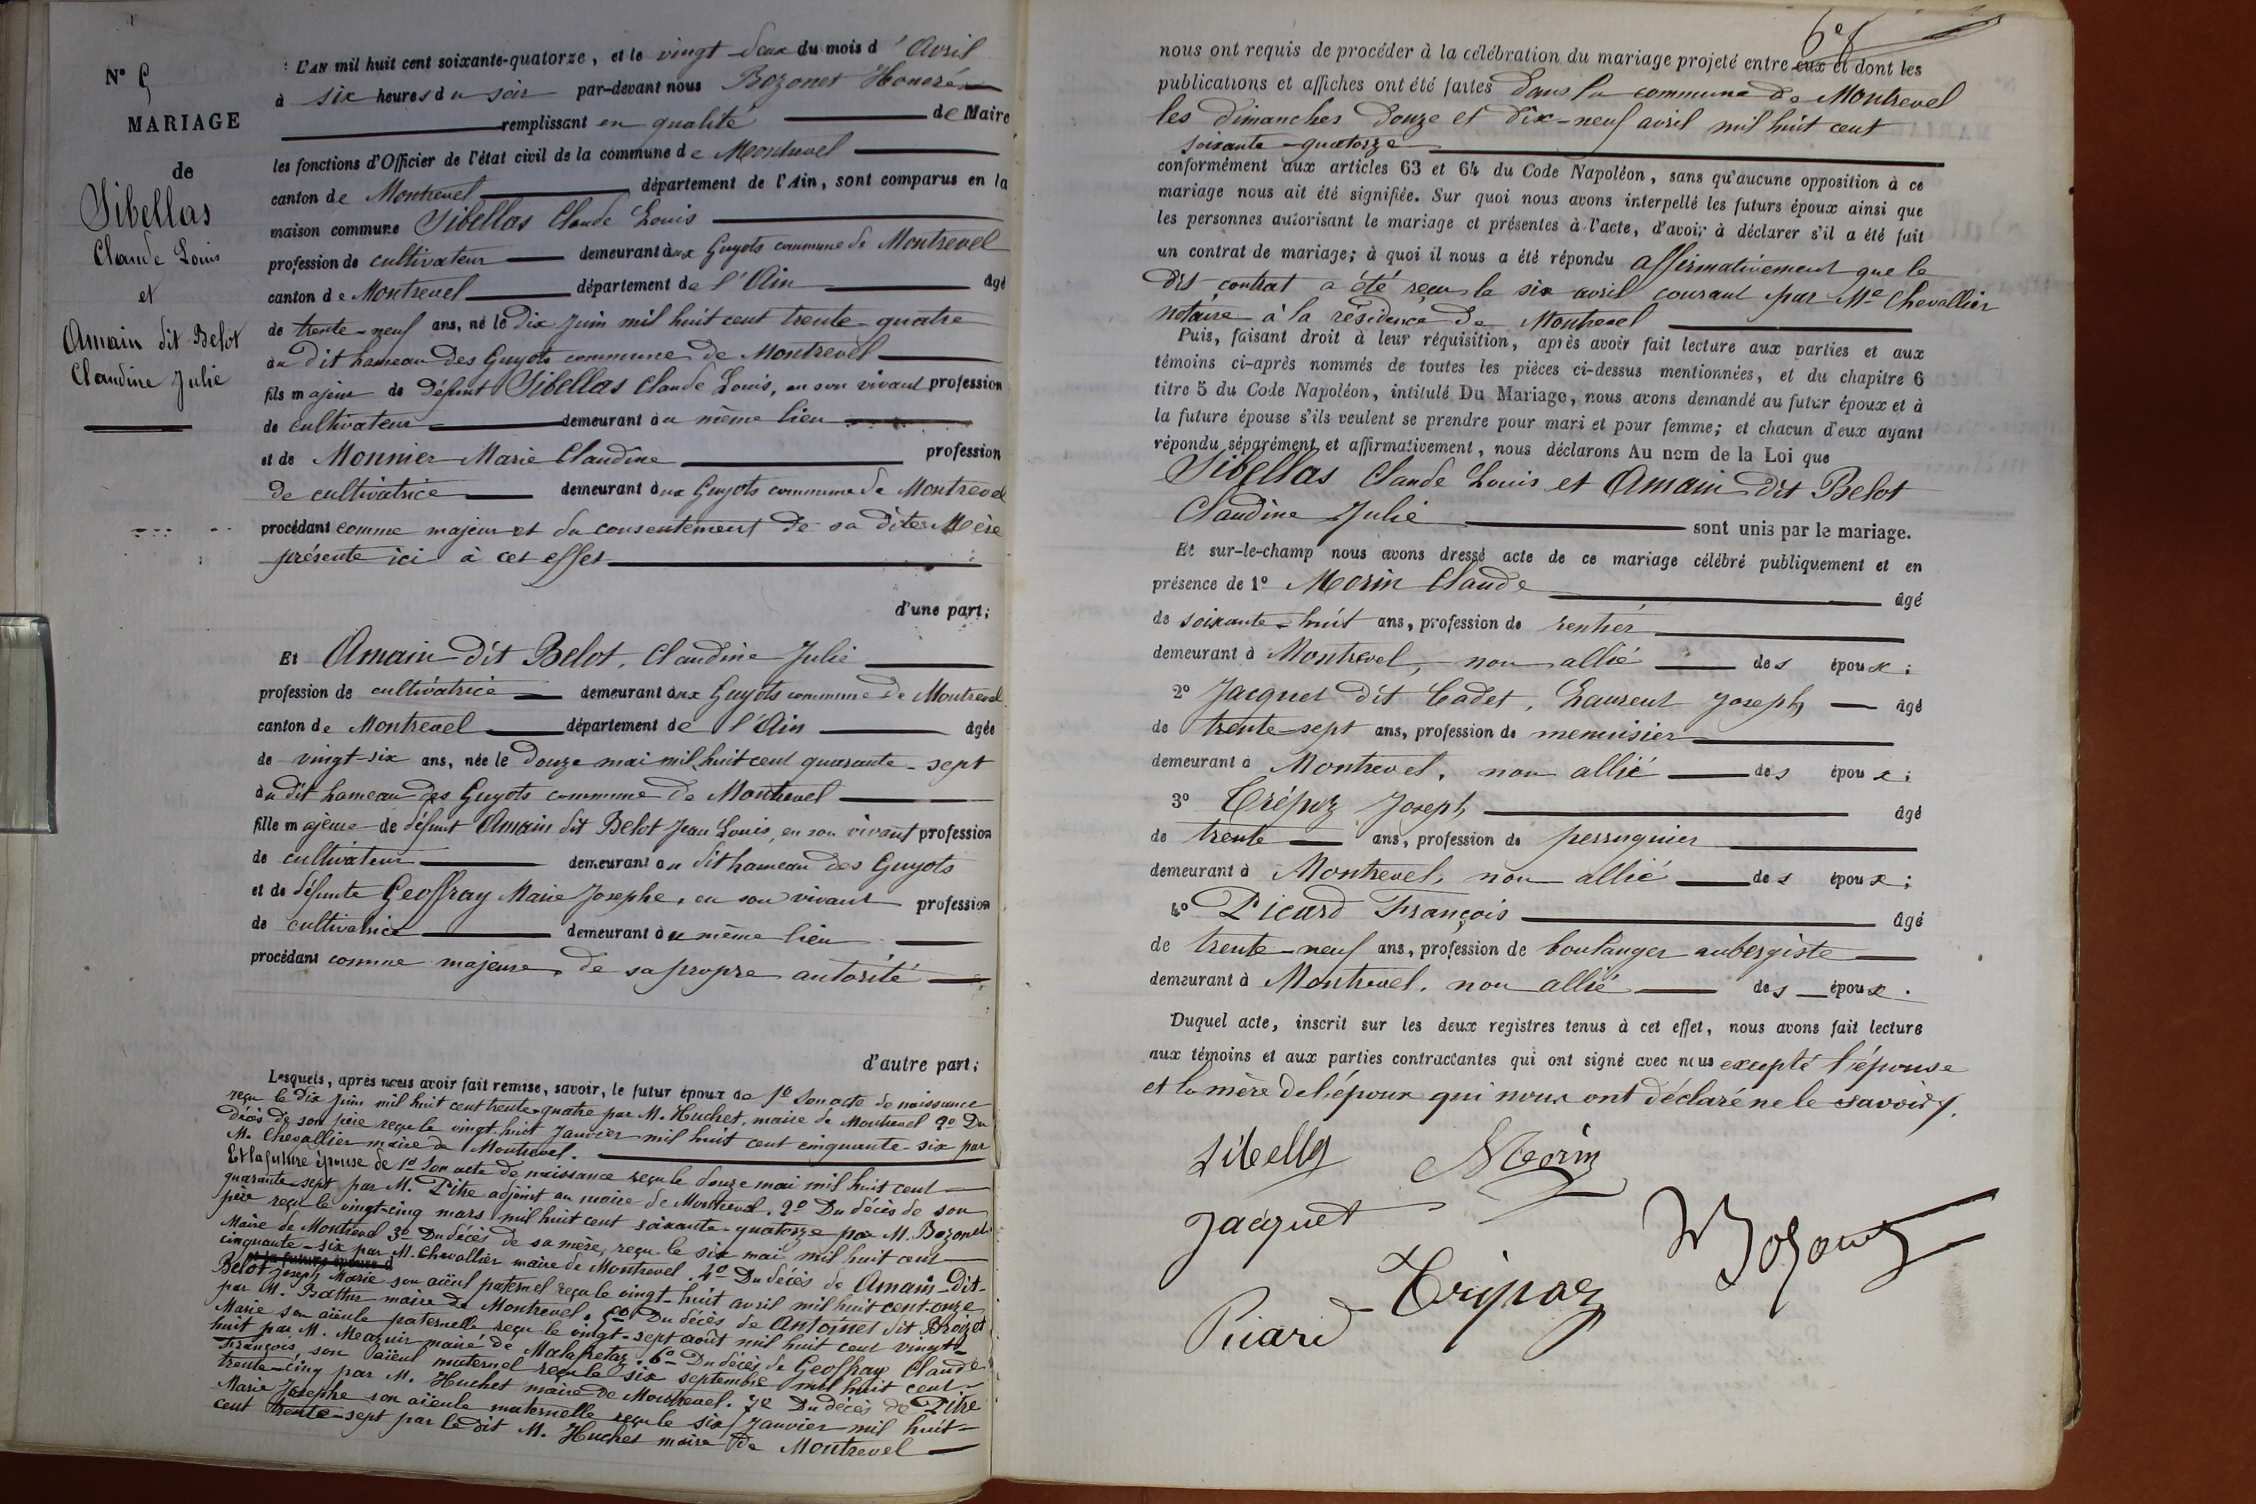 N° 9
MARIAGE
de
Sibellas
Claude Louis
et
Amain dit Belot
Claudine Julie
L'AN mil huit cent soixante-quatorze, et le vingt-deux du mois d'Avril
à six heures du soir par-devant nous Bozonet Honoré
remplissant en qualité de Maire
les fonctions d'Officier de l'état civil de la commune de Montrevel
canton de Montrevel département de l'Ain, sont comparus en la
maison commune Sibellas Claude Louis
profession de cultivateur demeurant aux Guyots commune de Montrevel
canton de Montrevel département de l'Ain âgé
de trente-neuf ans, né le dix juin mil huit cent trente-quatre
au dit hameau des Guyots commune de Montrevel
fils majeur de défunt Sibellas Claude Louis, en son vivant profession
de cultivateur demeurant au même lieu
et de Monnier Marie Claudine profession
de cultivatrice demeurant aux Guyots commune de Montrevel
procédant comme majeur et du consentement de sa dite Mère
présente ici à cet effet
d'une part;
Et Amain dit Belot, Claudine Julie
profession de cultivatrice demeurant aux Guyots commune de Montrevel
canton de Montrevel département de l'Ain âgée
de vingt-six ans, née le douze mai mil huit cent quarante-sept
au dit hameau des Guyots commune de Montrevel
fille majeure de défunt Amain dit Belot Jean Louis, en son vivant profession
de cultivateur demeurant au dit hameau des Guyots
et de défunte Geoffray Marie Josephe, en son vivant profession
de cultivatrice demeurant au même lieu
procédant comme majeure, de sa propre autorité
d'autre part;
Lesquels, après nous avoir fait remise, savoir, le futur époux de 1° Son acte de naissance
reçu le dix juin mil huit cent trente-quatre par M. Huchet, maire de Montrevel 2° Du
décès de son père reçu le vingt-huit Janvier mil huit cent cinquante-six par
M. Chevallier maire de Montrevel.
Et la future épouse de 1° Son acte de naissance reçu le douze mai mil huit cent
quarante-sept par M. Pitre adjoint au maire de Montrevel. 2° Du décès de son
père reçu le vingt-cinq mars mil huit cent soixante-quatorze par M. Bozonet
Maire de Montrevel 3° Du décès de sa mère, reçu le six mai mil huit cent
cinquante-six par M. Chevallier maire de Montrevel. 4° Du décès de Amain-dit-
et la future épouse d
Belot Joseph Marie son aïeul paternel reçu le vingt-huit avril mil huit cent onze
par M. maire de Montrevel. 5° Du décès de Antoinet dit Broizet
Marie son aïeule paternelle reçu le vingt-sept août mil huit cent vingt-
huit par M. maire de Malafretaz. 6° Du décès de Geoffray Claude
François, son aïeul maternel reçu le six septembre mil huit cent
trente-cinq par M. Huchet maire de Montrevel. 7° Du décès de Pitre
Marie Josephe son aïeule maternelle reçu le six Janvier mil huit-
cent trente-sept par le dit M. Huchet maire de Montrevel
nous ont requis de procéder à la célébration du mariage projeté entre eux et dont les
publications et affiches ont été faites dans la commune de Montrevel
les dimanches douze et dix-neuf avril mil huit cent
soixante-quatorze
conformément aux articles 63 et 64 du Code Napoléon, sans qu'aucune opposition à ce
mariage nous ait été signifiée. Sur quoi nous avons interpellé les futurs époux ainsi que
les personnes autorisant le mariage et présentes à l'acte, d'avoir à déclarer s'il a été fait
un contrat de mariage; à quoi il nous a été répondu affirmativement que le
dit contrat a été reçu le six avril courant par Me Chevallier
notaire à la résidence de Montrevel
Puis, faisant droit à leur réquisition, après avoir fait lecture aux parties et aux
témoins ci-après nommés de toutes les pièces ci-dessus mentionnées, et du chapitre 6
titre 5 du Code Napoléon, intitulé Du Mariage, nous avons demandé au futur époux et à
la future épouse s'ils veulent se prendre pour mari et pour femme; et chacun d'eux ayant
répondu séparément et affirmativement, nous déclarons Au nom de la Loi que
Sibellas Claude Louis et Amain dit Belot
Claudine Julie sont unis par le mariage.
Et sur-le-champ nous avons dressé acte de ce mariage célébré publiquement et en
présence de 1° Morin Claude âgé
de soixante-huit ans, profession de rentier
demeurant à Montrevel, non allié des époux;
2° Jacquet dit Cadet, Laurent Joseph âgé
de trente-sept ans, profession de menuisier
demeurant à Montrevel, non allié des époux;
3° Trépoz Joseph âgé
de trente ans, profession de perruquier
demeurant à Montrevel, non allié des époux;
4° Picard François âgé
de trente-neuf ans, profession de boulanger aubergiste
demeurant à Montrevel, non allié des époux.
Duquel acte, inscrit sur les deux registres tenus à cet effet, nous avons fait lecture
aux témoins et aux parties contractantes qui ont signé avec nous excepté l'épouse
et la mère de l'époux qui nous ont déclaré ne le savoir.
Sibellas Morin
Jacquet
Bozonet
Trépoz
Picard